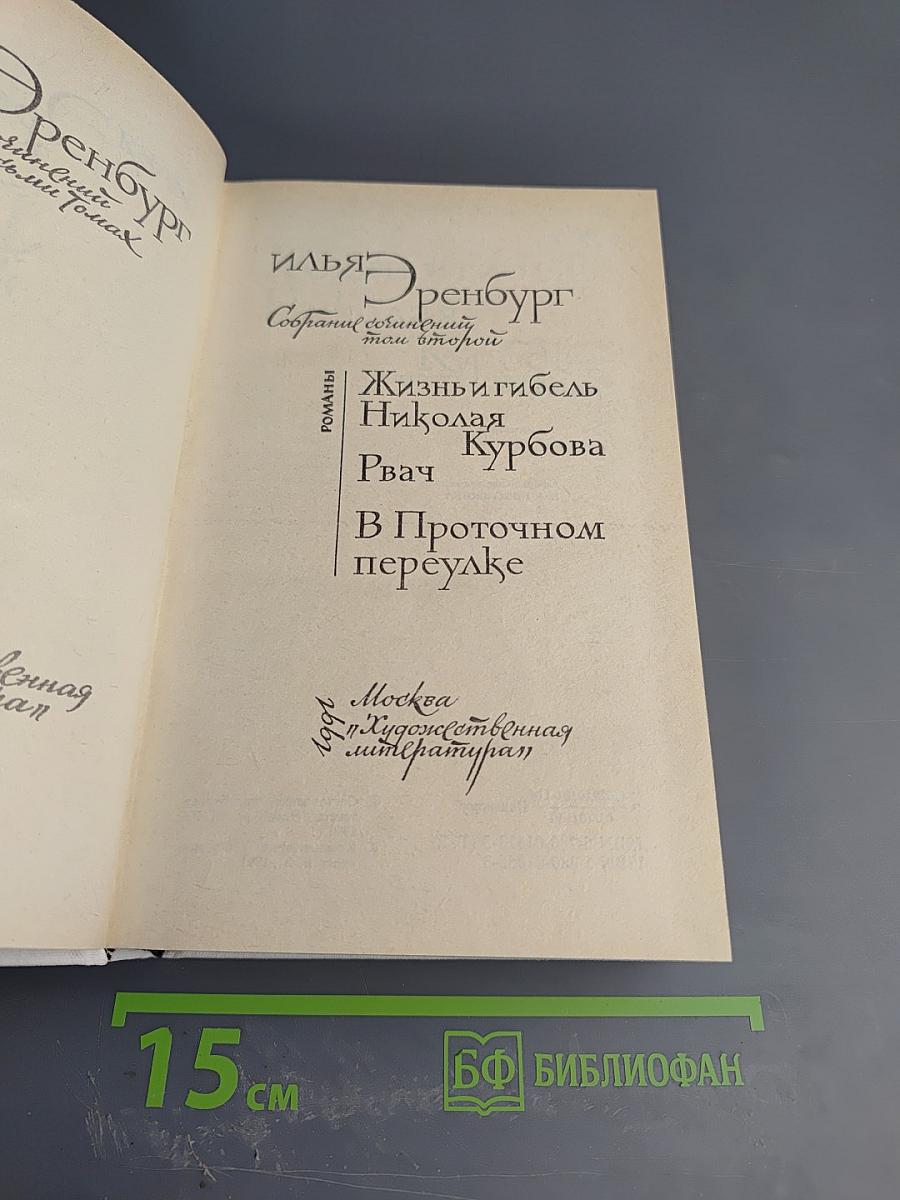 Эренбург
Томах
Илья Эренбург
Собрание сочинений
том второй
Романы
Жизнь и гибель
Николая
Курбова
Рвач
В Проточном
переулке
1991
Москва
"Художественная
литература"
15 см
БФ БИБЛИОФАН